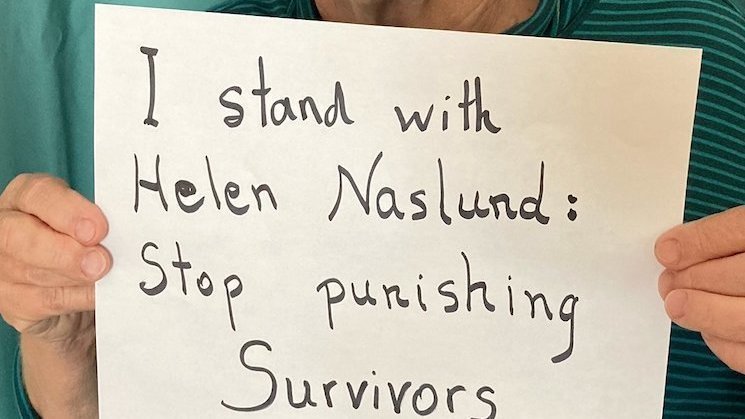 I stand with
Helen Naslund:
Stop punishing
Survivors